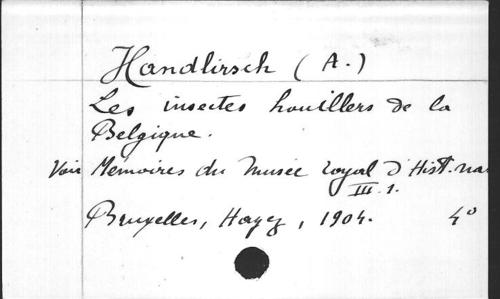 Handlirsch (A.)
Les insectes houillers de la
Belgique.
Voir Mémoires du Musée royal d'Hist. na
III. 1.
Bruxelles, Hayez, 1904. 4°